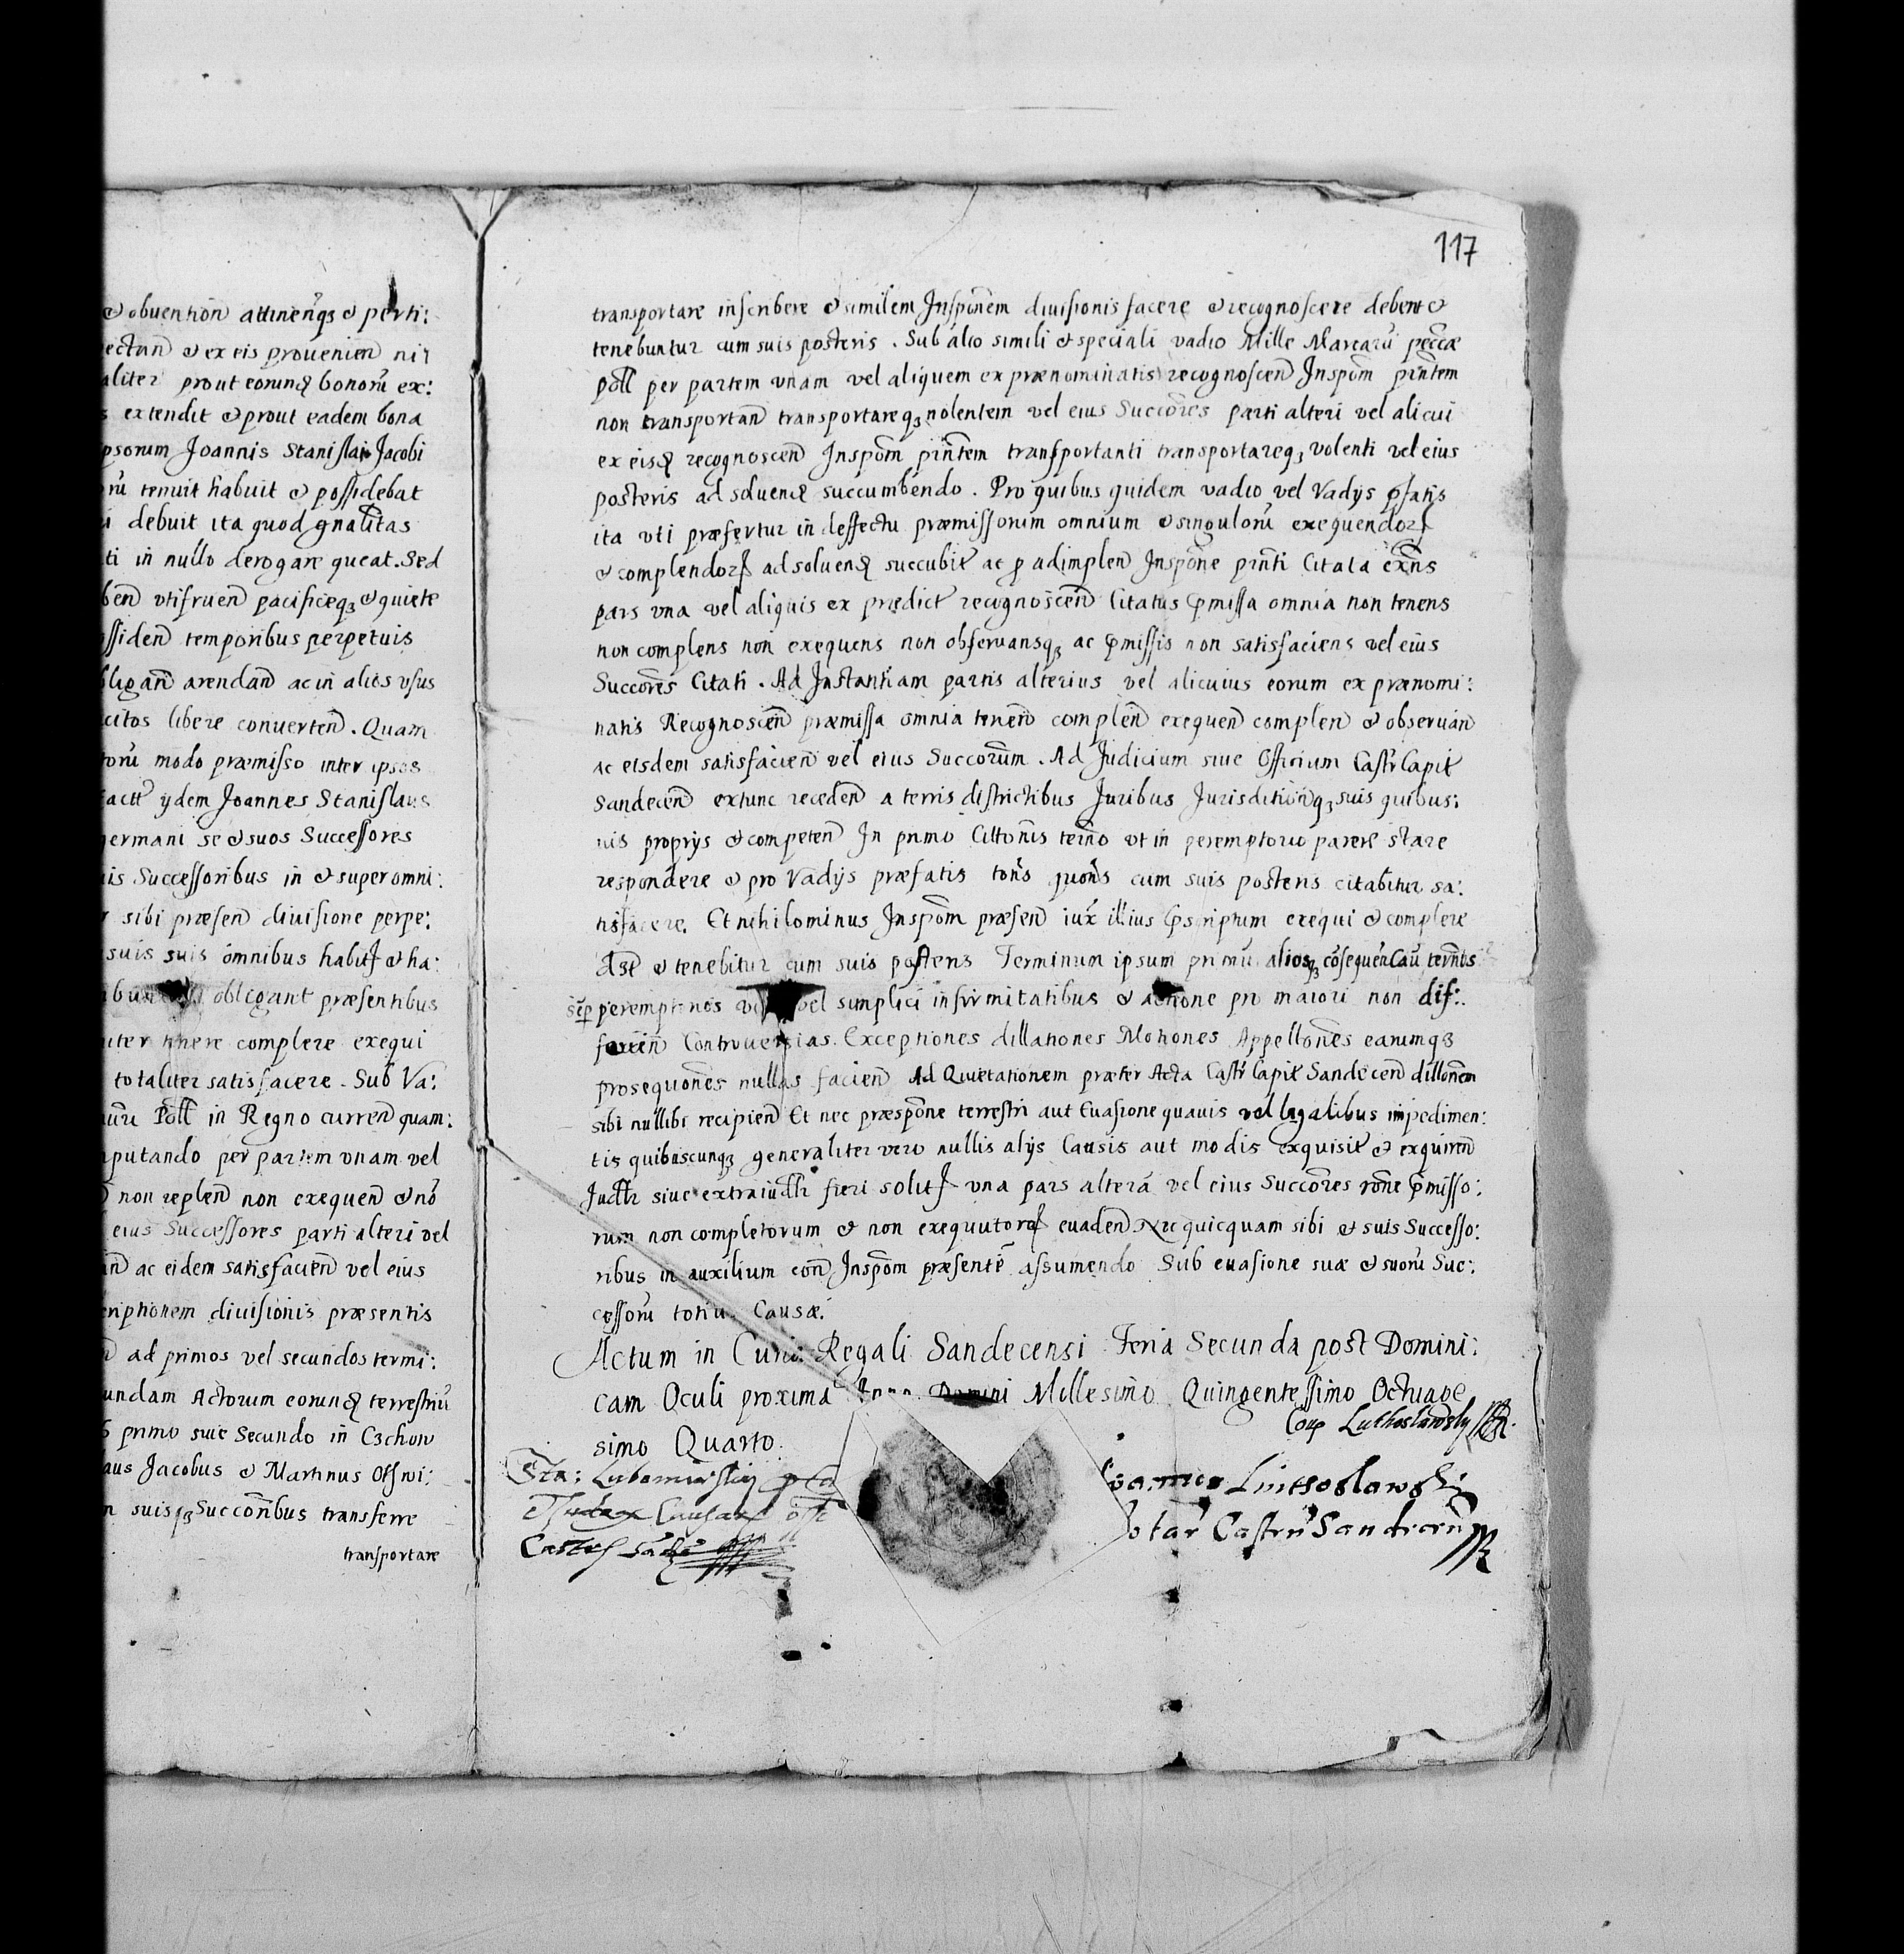 & obuention attinen̄q₃ & perti:
ectan̄ & ex eis prouenien̄ nil
aliter prout eorund bonorū ex:
s extendit & prout eadem bona
psorum Joannis Stanislai Jacobi
orū tenuit habuit & possidebat
i debuit ita quod gnalitas
ti in nullo derogare queat. Sed
ben̄ vtifruen̄ pacificeq₃ & quiete
ssiden̄ temporibus perpetuis
bligan̄ arendan̄ ac in alios vsus
citos libere conuerten̄. Quam
torū modo præmisso inter ipsos
factt ydem Joannes Stanislaus
germani se & suos Successores
is Successoribus in & super omni:
sibi præsen̄ diuisione perpe:
suis suis omnibus habitƺ & ha:
obligant præsentibus
iter tenere complere exequi
totaliter satisfacere. Sub Va:
Poll in Regno curren̄ quam:
putando per partem vnam vel
non replen̄ non exequen̄ & nō
eius Successores parti alteri vel
an̄ ac eidem satisfacien̄ vel eius
criptionem diuisionis præsentis
ad primos vel secundos termi:
undam Actorum eorund terrestriū
primo siue Secundo in Czchow
aus Jacobus & Martinus Otfwi:
n suisq₃ Succorībus transferre
transportare
117
transportare inscribere & similem Inspōnem diuisionis facere & recognoscere debent &
tenebuntur cum suis posteris. Sub alio simili & speciali vadio Mille Marcarū peccæ
poll per partem vnam vel aliquem ex prænominatis recognoscen̄ Inspōm pn̄tem
non transportan̄ transportareq₃ nolentem vel eius Succōres parti alteri vel alicui
ex eisd recognoscen̄ Inspōm pn̄tem transportanti transportareq₃ volenti vel eius
posteris ad soluend succumbendo. Pro quibus quidem vadio vel Vadijs pfatis
ita vti præfertur in deffectu præmissorum omnium & singulorū exequendorƺ
& complendorƺ ad soluend succubit ac p adimplen̄ Inspōne pn̄ti Citata exn̄s
pars vna vel aliquis ex prædict recognoscen̄ Citatus pmissa omnia non tenens
non complens non exequens non obseruansq₃ ac pmissis non satisfaciens vel eius
Succōres Citati. Ad Instantiam partis alterius vel alicuius eorum ex prænomi:
natis Recognoscen̄ præmissa omnia tenen̄ complen̄ exequen̄ complen̄ & obseruan̄
ac eisdem satisfacien̄ vel eius Succorūm. Ad Judicium siue Officium Castr Capit
Sandecen̄ extunc receden̄ a terris districtibus Juribus Jurisditionq₃ suis quibus:
uis proprijs & competen̄ In primo Cittonis tern̄o vt in peremptorio parere stare
respondere & pro Vadijs præfatis tōns quōns cum suis posteris citabitur sa:
tisfacere. Et nihilominus Inspōm præsen̄ iux illius pscriptum exequi & complere
& tenebitur cum suis posteris Terminum ipsum primū aliosq₃ cōsequen̄ Cau tern̄os
sep peremptorios vel simplici infirmitatibus & actione pro maiori non dif:
feren̄ Controuersias. Exceptiones dillationes Motiones Appellōnes earumq₃
prosequōnes nullas facien̄ Ad Quietationem præter Acta Castr Capit Sandecen̄ dillōnem
sibi nullibi recipien̄ Et nec præspōne terrestri aut Euasione quauis vel legalibus impedimen:
tis quibuscunq₃ generaliter vero nullis alijs Causis aut modis exquisit & exquiren̄
Judtr siue extraiudtr fieri solitƺ vna pars alterā vel eius Succōres rōne pmisso:
rum non completorum & non exequutorƺ euaden̄ Nec quicquam sibi & suis Successo:
ribus in auxilium con̄ Inspōm præsentē assumendo Sub euasione suæ & suorū Suc:
cessorū totius Causæ.
Actum in Curia Regali Sandecensi Feria Secunda post Domini:
cam Oculi proxima Anno Domini Millesimo Quingentessimo Octuage
simo Quarto.
Corr Luthoslawsky
Sta: Lubomirsky
Judex Causarƺ off
Castr̄
Joannes Luthoslawski
Notar Castrn̄ Sandecen̄